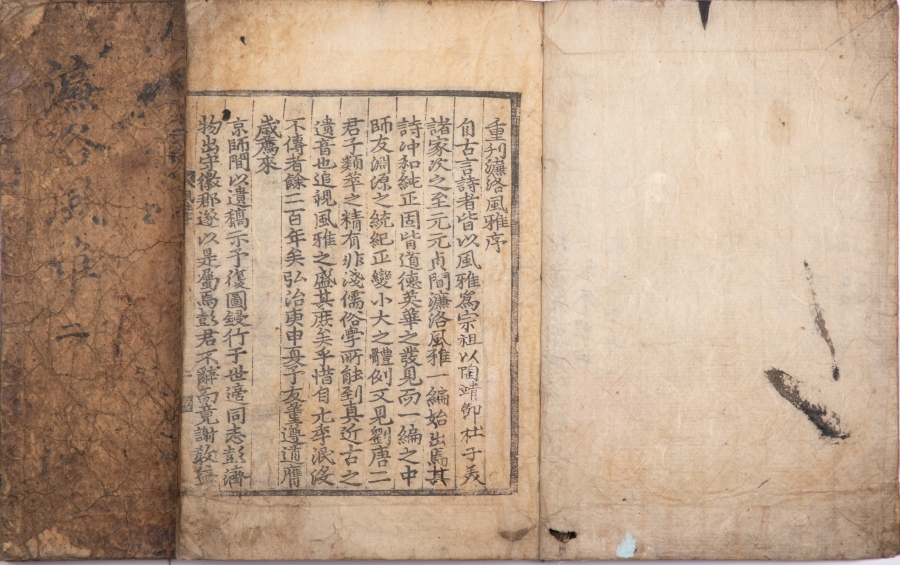 重刊濂洛風雅序
自古言詩者皆以風雅爲宗祖以陶靖節杜子美
諸家次之至元元貞間濂洛風雅一編始出焉其
詩冲和純正固皆道德英華之發見而一編之中
師友淵源之統紀正變小大之體例又見劉唐二
君子類萃之精有非淺儒俗學所能到真近古之
遺音也追視風雅之盛其庶矣乎惜自元季泯沒
不傳者餘二百年矣弘治庚申夏予友董遵道膺
歲薦來
京師間以遺稿示予復圖鋟行于世適同志彭濟
物出守徽郡遂以是屬焉彭君不辭而竟謝政
濂洛風雅 二